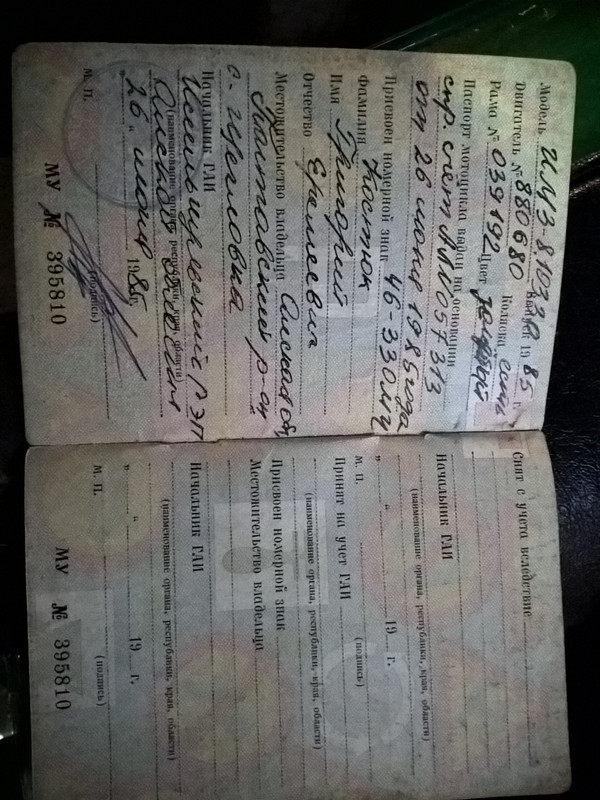 Модель ИМЗ-8.10330
Двигатель № 880680 Выпуск 1985 г.
Рама № 039192 Цвет Коляска
Паспорт мотоцикла выдан на основании
спр. счет АЛ № 057313
от 26 июня 1985 года
Присвоен номерной знак 46-33 ОМЧ
Фамилия Костюк
Имя Григорий
Отчество Еремеевич
Местожительство владельца Омская обл
Полтавский р-он
с. Щегловка
Начальник ГАИ
Исилькульский РЭП
Омской области
(наименование органа, республики, края, области)
„26“ июня 1985г.
м. п. (подпись)
МУ № 395810
Снят с учета вследствие
Начальник ГАИ
(наименование органа, республики, края, области)
„ “ 19 г.
м. п. (подпись)
Принят на учет ГАИ
(наименование органа, республики, края, области)
Присвоен номерной знак
Местожительство владельца
Начальник ГАИ
(наименование органа, республики, края, области)
„ “ 19 г.
м. п. (подпись)
МУ № 395810